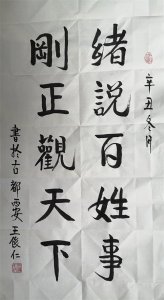 辛丑冬月
緒説百姓事
剛正觀天下
書於古都西安王俊仁